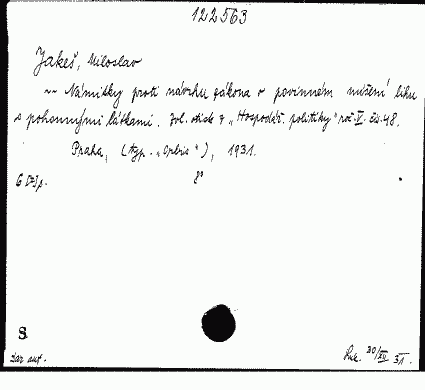 122563
Jakeš, Miloslav
~~ Námitky proti návrhu zákona o povinném mísení lihu
s pohonnými látkami. Zvl. otisk z „Hospodář. politiky“ roč. V. čís. 48.
Praha, (typ. „Orbis“), 1931.
8°
S
Dar aut. 30/XII 31.